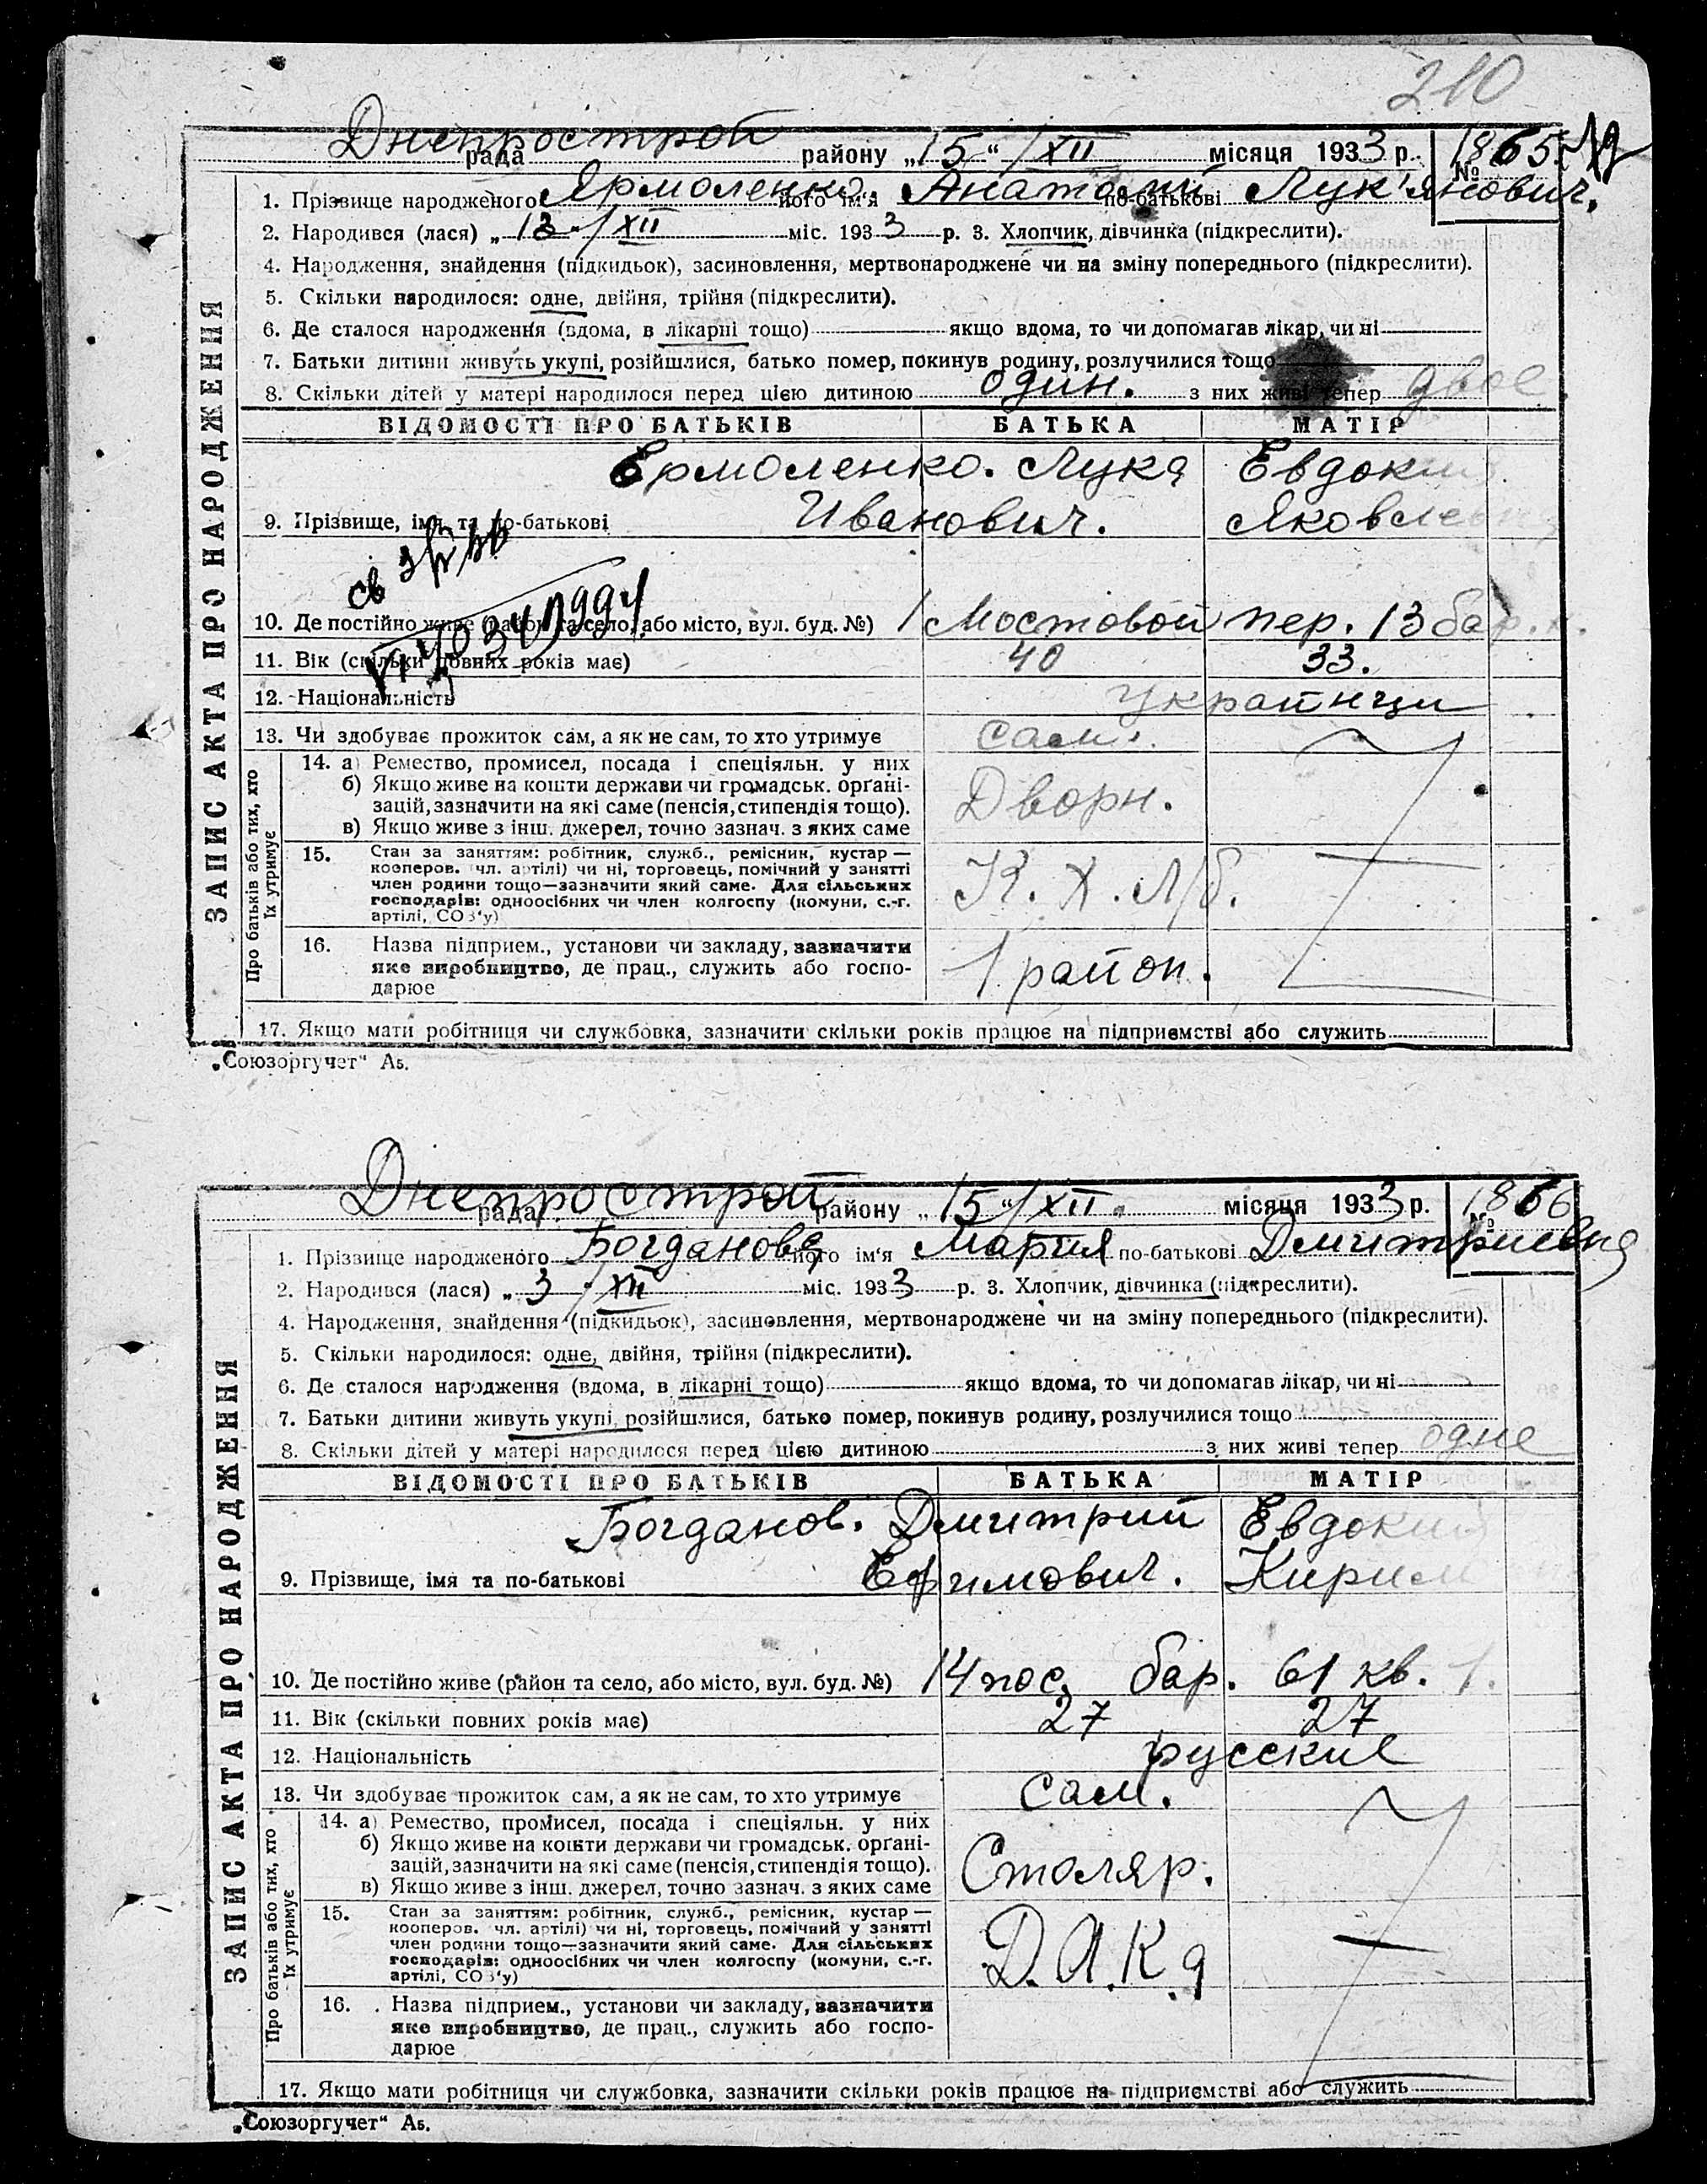 210
Днепрострой
рада району „15“/XII місяця 1933 р. № 1865
1. Прізвище народженого Ярмоленко його ім‘я Анатолий по-батькові Лук'янович.
2. Народився (лася) „13/XII міс. 1933 р. 3. Хлопчик, дівчинка (підкреслити).
4. Народження, знайдення (підкидьок), засиновлення, мертвонароджене чи на зміну попереднього (підкреслити).
5. Скільки народилося: одне, двійня, трійня (підкреслити).
6. Де сталося народження (вдома, в лікарні тощо) якщо вдома, то чи допомагав лікар, чи ні
7. Батьки дитини живуть укупі, розійшлися, батько помер, покинув родину, розлучилися тощо
8. Скільки дітей у матері народилося перед цією дитиною один. з них живі тепер двое
ВІДОМОСТІ ПРО БАТЬКІВ БАТЬКА МАТІР
Ермоленко. Лука Евдокия
9. Прізвище, імя та по-батькові Иванович. Яковлевна
св
10. Де постійно живе (район та село, або місто, вул. буд. №) 1 Мостовой пер. 13 бар.
11. Вік (скільки повних років має) 40 33.
12. Національність українци
13. Чи здобуває прожиток сам, а як не сам, то хто утримує сам.
14. а) Ремество, промисел, посада і спеціяльн. у них
б) Якщо живе на кошти держави чи громадськ. орґані-
зацій, зазначити на які саме (пенсія, стипендія тощо). Дворн.
в) Якщо живе з інш. джерел, точно зазнач. з яких саме
15. Стан за заняттям: робітник, служб., ремісник, кустар —
кооперов. чл. артілі) чи ні, торговець, помічний у занятті
член родини тощо—зазначити який саме. Для сільських
господарів: одноосібних чи член колгоспу (комуни, с.-г.
артілі, СОЗ‘у) К. Х. Л/б.
16. Назва підприєм., установи чи закладу, зазначити
яке виробництво, де прац., служить або госпо-
дарює 1 район.
17. Якщо мати робітниця чи службовка, зазначити скільки років працює на підприємстві або служить
ЗАПИС АКТА ПРО НАРОДЖЕННЯ
Про батьків або тих, хто
їх утримує
„Союзоргучет“ Аб.
Днепрострой
рада району „15“/XII місяця 1933 р. № 1866
1. Прізвище народженого Богданова його ім‘я Мария по-батькові Дмитриевна
2. Народився (лася) „3/XII міс. 1933 р. 3. Хлопчик, дівчинка (підкреслити).
4. Народження, знайдення (підкидьок), засиновлення, мертвонароджене чи на зміну попереднього (підкреслити).
5. Скільки народилося: одне, двійня, трійня (підкреслити).
6. Де сталося народження (вдома, в лікарні тощо) якщо вдома, то чи допомагав лікар, чи ні
7. Батьки дитини живуть укупі, розійшлися, батько помер, покинув родину, розлучилися тощо
8. Скільки дітей у матері народилося перед цією дитиною з них живі тепер одне
ВІДОМОСТІ ПРО БАТЬКІВ БАТЬКА МАТІР
Богданов. Дмитрий Евдокия
9. Прізвище, імя та по-батькові Ефимович.
10. Де постійно живе (район та село, або місто, вул. буд. №) 14 пос. бар. 61 кв. 1.
11. Вік (скільки повних років має) 27 27
12. Національність русские
13. Чи здобуває прожиток сам, а як не сам, то хто утримує сам.
14. а) Ремество, промисел, посада і спеціяльн. у них
б) Якщо живе на кошти держави чи громадськ. орґані-
зацій, зазначити на які саме (пенсія, стипендія тощо). Столяр.
в) Якщо живе з інш. джерел, точно зазнач. з яких саме
15. Стан за заняттям: робітник, служб., ремісник, кустар —
кооперов. чл. артілі) чи ні, торговець, помічний у занятті
член родини тощо—зазначити який саме. Для сільських
господарів: одноосібних чи член колгоспу (комуни, с.-г.
артілі, СОЗ‘у)
16. Назва підприєм., установи чи закладу, зазначити
яке виробництво, де прац., служить або госпо-
дарює
17. Якщо мати робітниця чи службовка, зазначити скільки років працює на підприємстві або служить
ЗАПИС АКТА ПРО НАРОДЖЕННЯ
Про батьків або тих, хто
їх утримує
„Союзоргучет“ Аб.